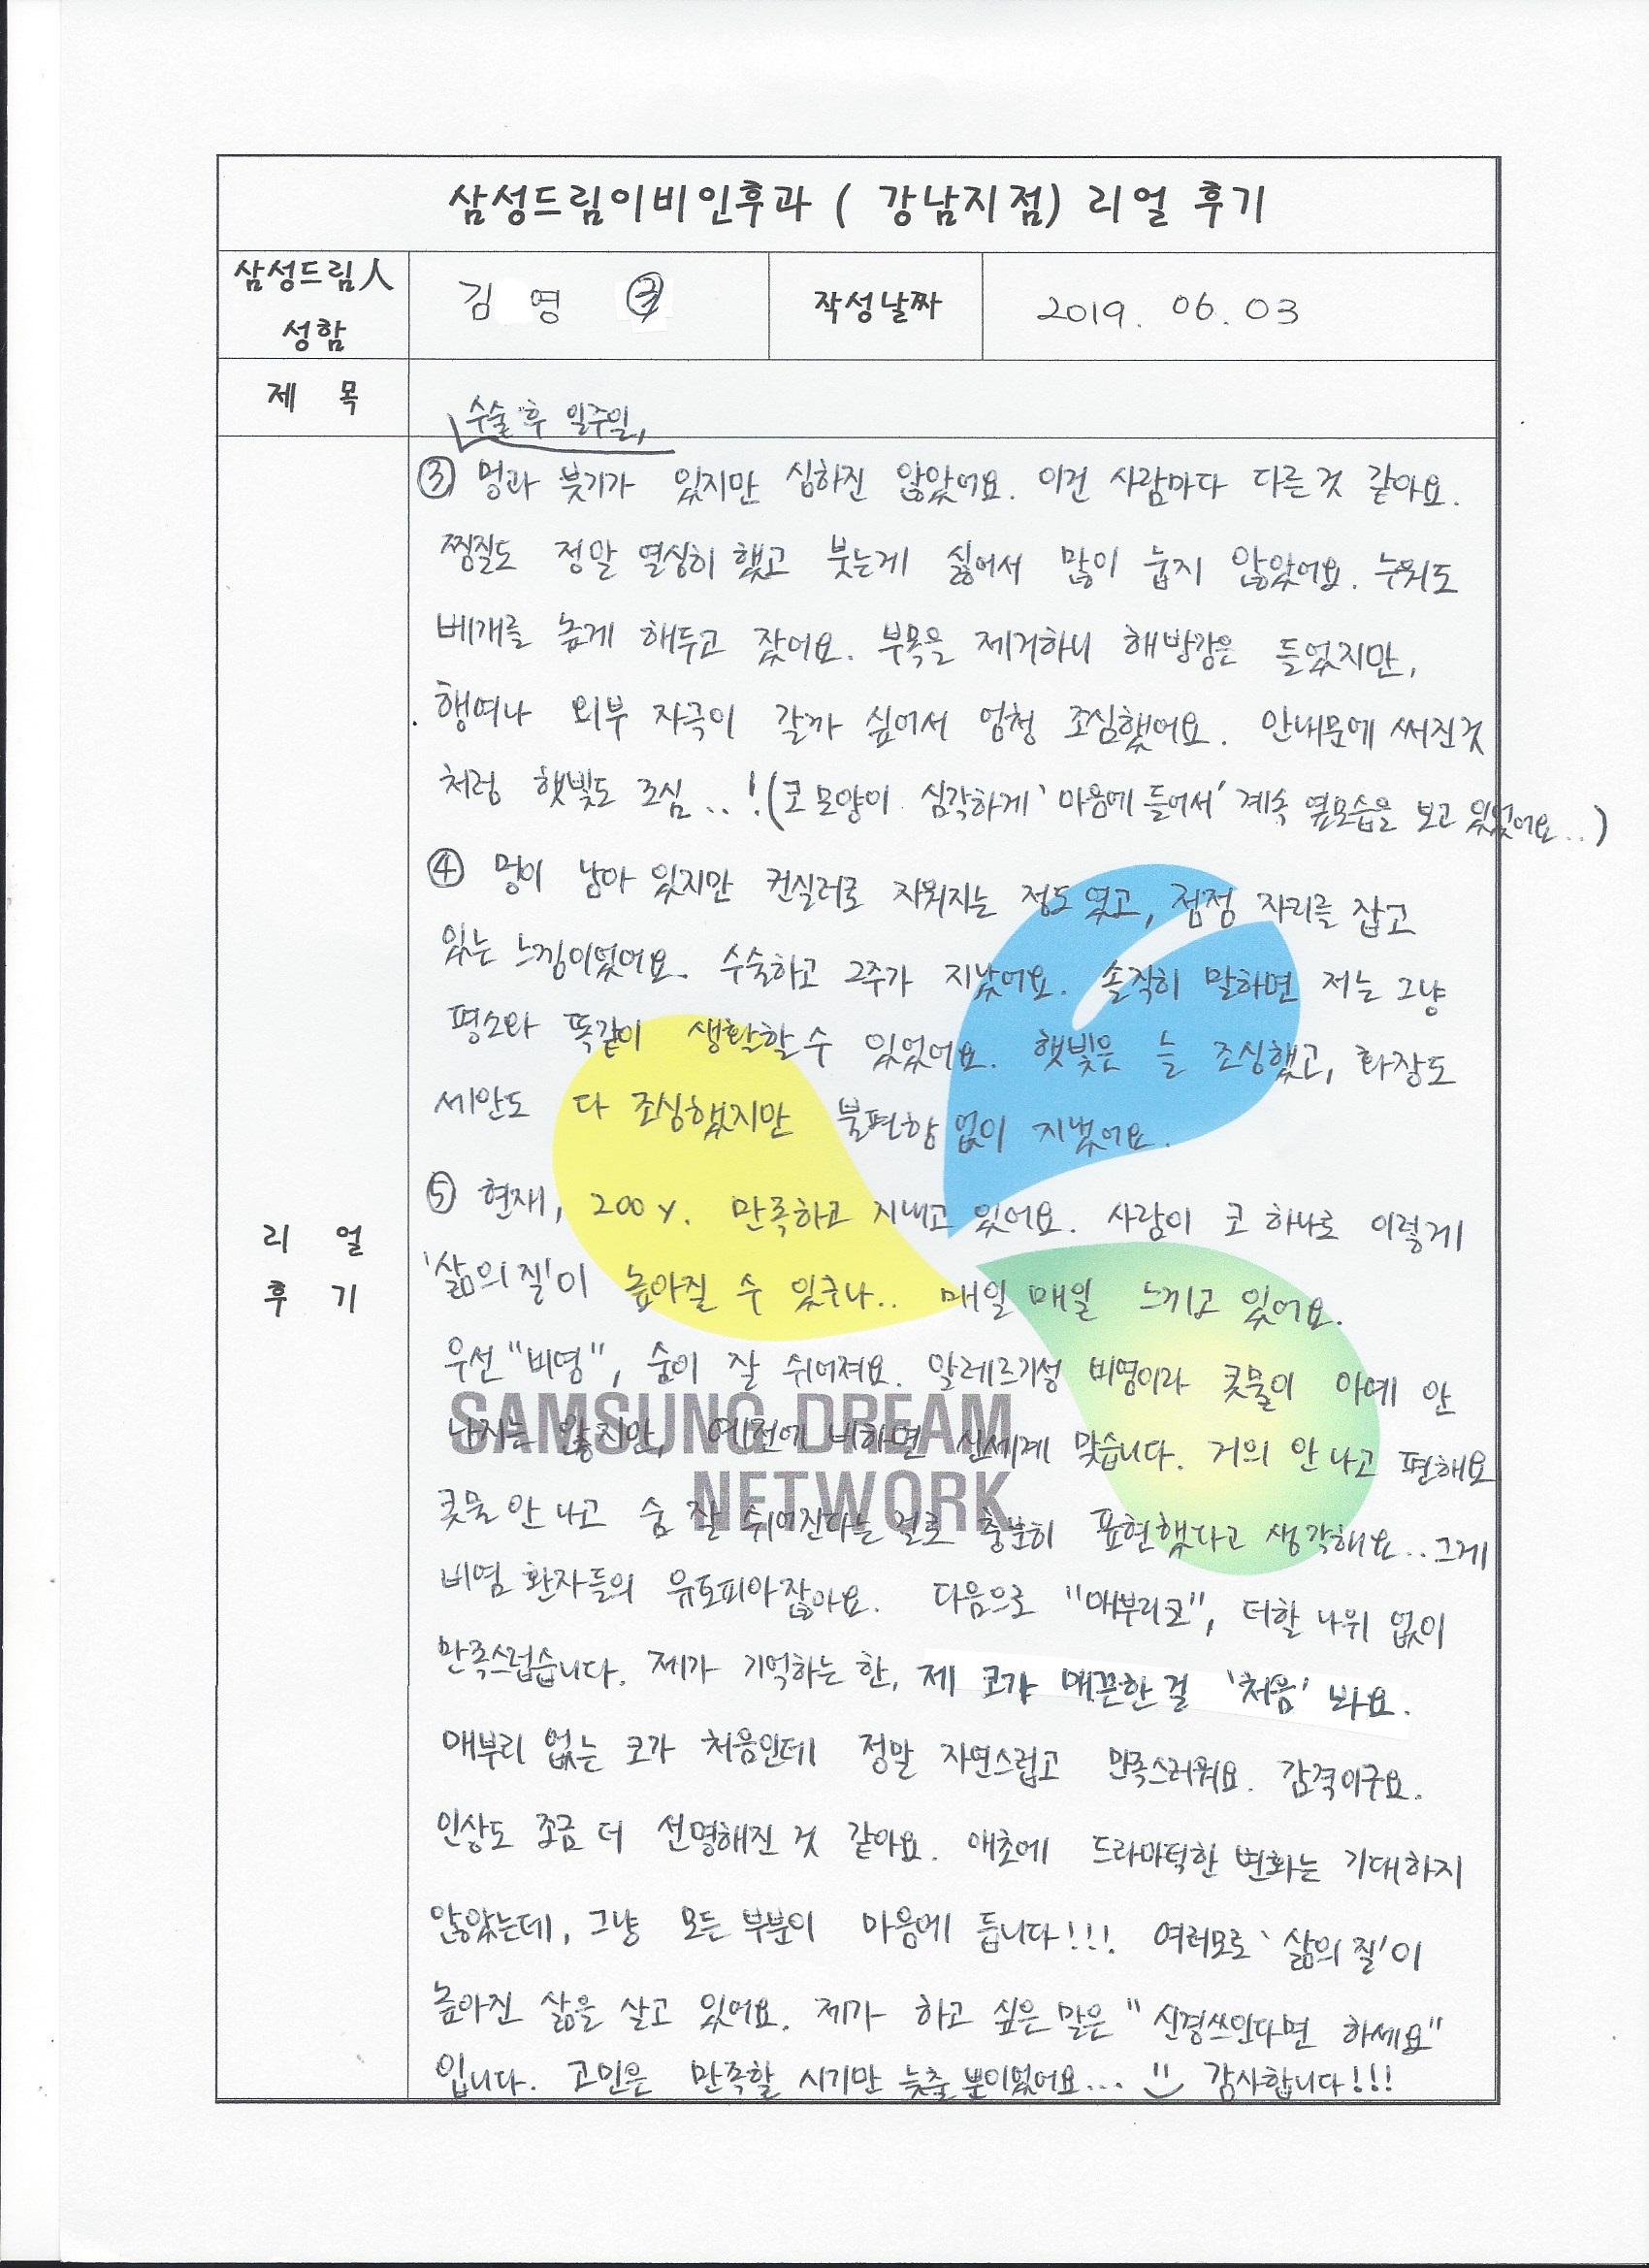 삼성드림이비인후과 ( 강남지점) 리얼 후기
삼성드림人 성함 김 영 ② 작성날짜 2019. 06. 03
제 목
수술 후 일주일,
③ 멍과 붓기가 있지만 심하진 않았어요. 이건 사람마다 다른것 같아요.
찜질도 정말 열심히 했고 붓는게 싫어서 많이 눕지 않았어요. 누워도
베개를 높게 해두고 잤어요. 부목을 제거하니 해방감은 들었지만,
행여나 외부 자극이 갈까 싶어서 엄청 조심했어요. 안내문에 써진것
처럼 햇빛도 조심..!(코 모양이 심각하게 '마음에 들어서' 계속 옆모습을 보고 있었어요..)
④ 멍이 남아 있지만 컨실러로 지워지는 정도였고, 점점 자리를 잡고
있는 느낌이었어요. 수술하고 2주가 지났어요. 솔직히 말하면 저는 그냥
평소와 똑같이 생활할 수 있었어요. 햇빛은 늘 조심했고, 화장도
세안도 다 조심했지만 불편함 없이 지냈어요.
⑤ 현재, 200%. 만족하고 지내고 있어요. 사람이 코 하나로 이렇게
'삶의 질'이 높아질 수 있구나.. 매일 매일 느끼고 있어요.
우선 "비염", 숨이 잘 쉬어져요. 알레르기성 비염이라 콧물이 아예 안
나지는 않지만, 예전에 비하면 신세계 맞습니다. 거의 안 나고 편해요
콧물 안 나고 숨 잘 쉬어진다는 걸로 충분히 표현했다고 생각해요..그게
비염 환자들의 유토피아잖아요. 다음으로 "매부리코", 더할 나위 없이
만족스럽습니다. 제가 기억하는 한, 제 코가 매끈한 걸 '처음' 봐요.
매부리 없는 코가 처음인데 정말 자연스럽고 만족스러워요. 감격이구요.
인상도 조금 더 선명해진 것 같아요. 애초에 드라마틱한 변화는 기대하지
않았는데, 그냥 모든 부분이 마음에 듭니다!!! 여러모로 '삶의 질'이
높아진 삶을 살고 있어요. 제가 하고 싶은 말은 "신경쓰인다면 하세요"
입니다. 고민은 만족할 시기만 늦출 뿐이었어요... 감사합니다!!!
리 얼
후 기
SAMSUNG DREAM
NETWORK